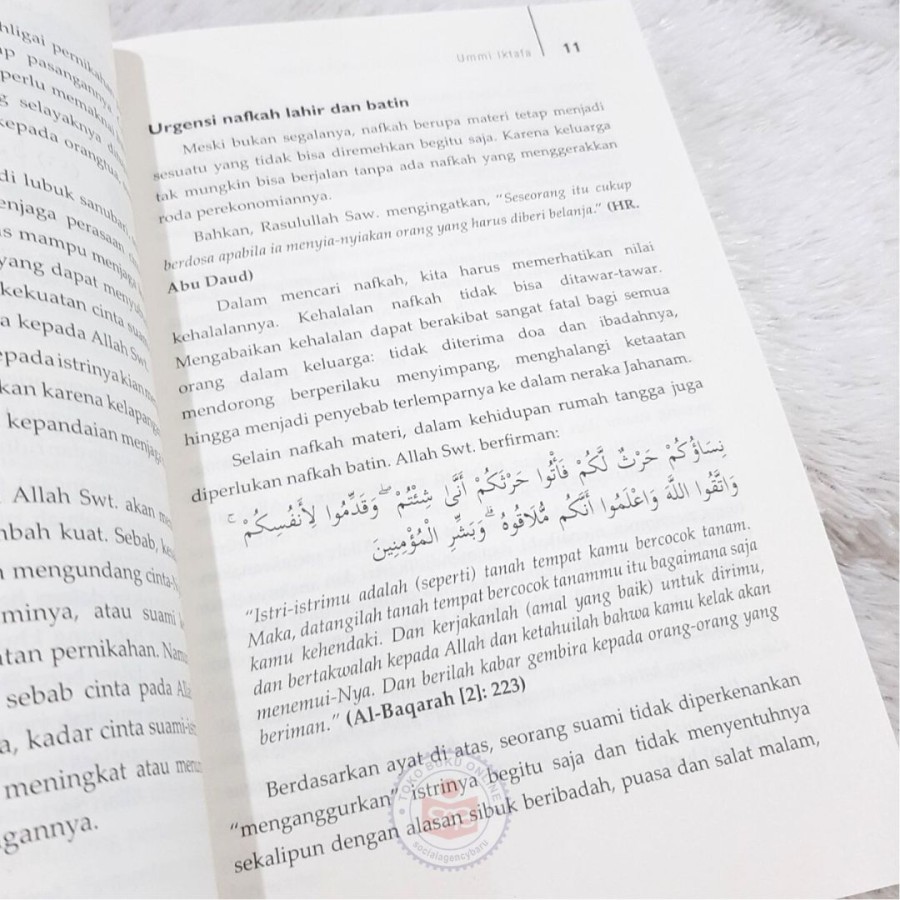 pernikahan
pasangannya
perlu
selayaknya
di lubuk sanubari
menjaga perasaan
mampu menjaga
yang dapat
kekuatan cinta
a kepada Allah Swt.
kan karena
kepandaian menjaga
Allah Swt. akan
mengundang cinta-
atau suami
pernikahan.
sebab cinta pada
a, kadar cinta suami-
meningkat atau
Ummi Iktafa 11
Urgensi nafkah lahir dan batin
Meski bukan segalanya, nafkah berupa materi tetap menjadi
sesuatu yang tidak bisa diremehkan begitu saja. Karena keluarga
tak mungkin bisa berjalan tanpa ada nafkah yang menggerakkan
roda perekonomiannya.
Bahkan, Rasulullah Saw. mengingatkan, “Seseorang itu cukup
berdosa apabila ia menyia-nyiakan orang yang harus diberi belanja.” (HR.
Abu Daud)
Dalam mencari nafkah, kita harus memerhatikan nilai
kehalalannya. Kehalalan nafkah tidak bisa ditawar-tawar.
Mengabaikan kehalalan dapat berakibat sangat fatal bagi semua
orang dalam keluarga: tidak diterima doa dan ibadahnya,
mendorong berperilaku menyimpang, menghalangi ketaatan
hingga menjadi penyebab terlemparnya ke dalam neraka Jahanam.
Selain nafkah materi, dalam kehidupan rumah tangga juga
diperlukan nafkah batin. Allah Swt. berfirman:
نِسَاؤُكُمْ حَرْثٌ لَّكُمْ فَأْتُوا حَرْثَكُمْ أَنَّىٰ شِئْتُمْ ۖ وَقَدِّمُوا لِأَنفُسِكُمْ ۚ
وَاتَّقُوا اللَّهَ وَاعْلَمُوا أَنَّكُم مُّلَاقُوهُ ۗ وَبَشِّرِ الْمُؤْمِنِينَ
“Istri-istrimu adalah (seperti) tanah tempat kamu bercocok tanam.
Maka, datangilah tanah tempat bercocok tanammu itu bagaimana saja
kamu kehendaki. Dan kerjakanlah (amal yang baik) untuk dirimu,
dan bertakwalah kepada Allah dan ketahuilah bahwa kamu kelak akan
menemui-Nya. Dan berilah kabar gembira kepada orang-orang yang
beriman.” (Al-Baqarah [2]: 223)
Berdasarkan ayat di atas, seorang suami tidak diperkenankan
“menganggurkan” istrinya begitu saja dan tidak menyentuhnya
sekalipun dengan alasan sibuk beribadah, puasa dan salat malam,
TOKO BUKU ONLINE
SAB
socialagencybaru